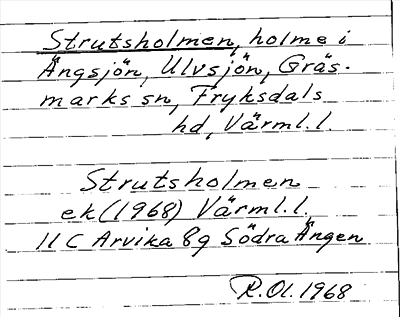 Strutsholmen, holme i
Ängsjön, Ulvsjön, Gräs-
marks sn, Fryksdals
hd, Värml.l.
Strutsholmen
ek (1968) Värml.l.
11 C Arvika 8g Södra Ängen
R.Ol. 1968